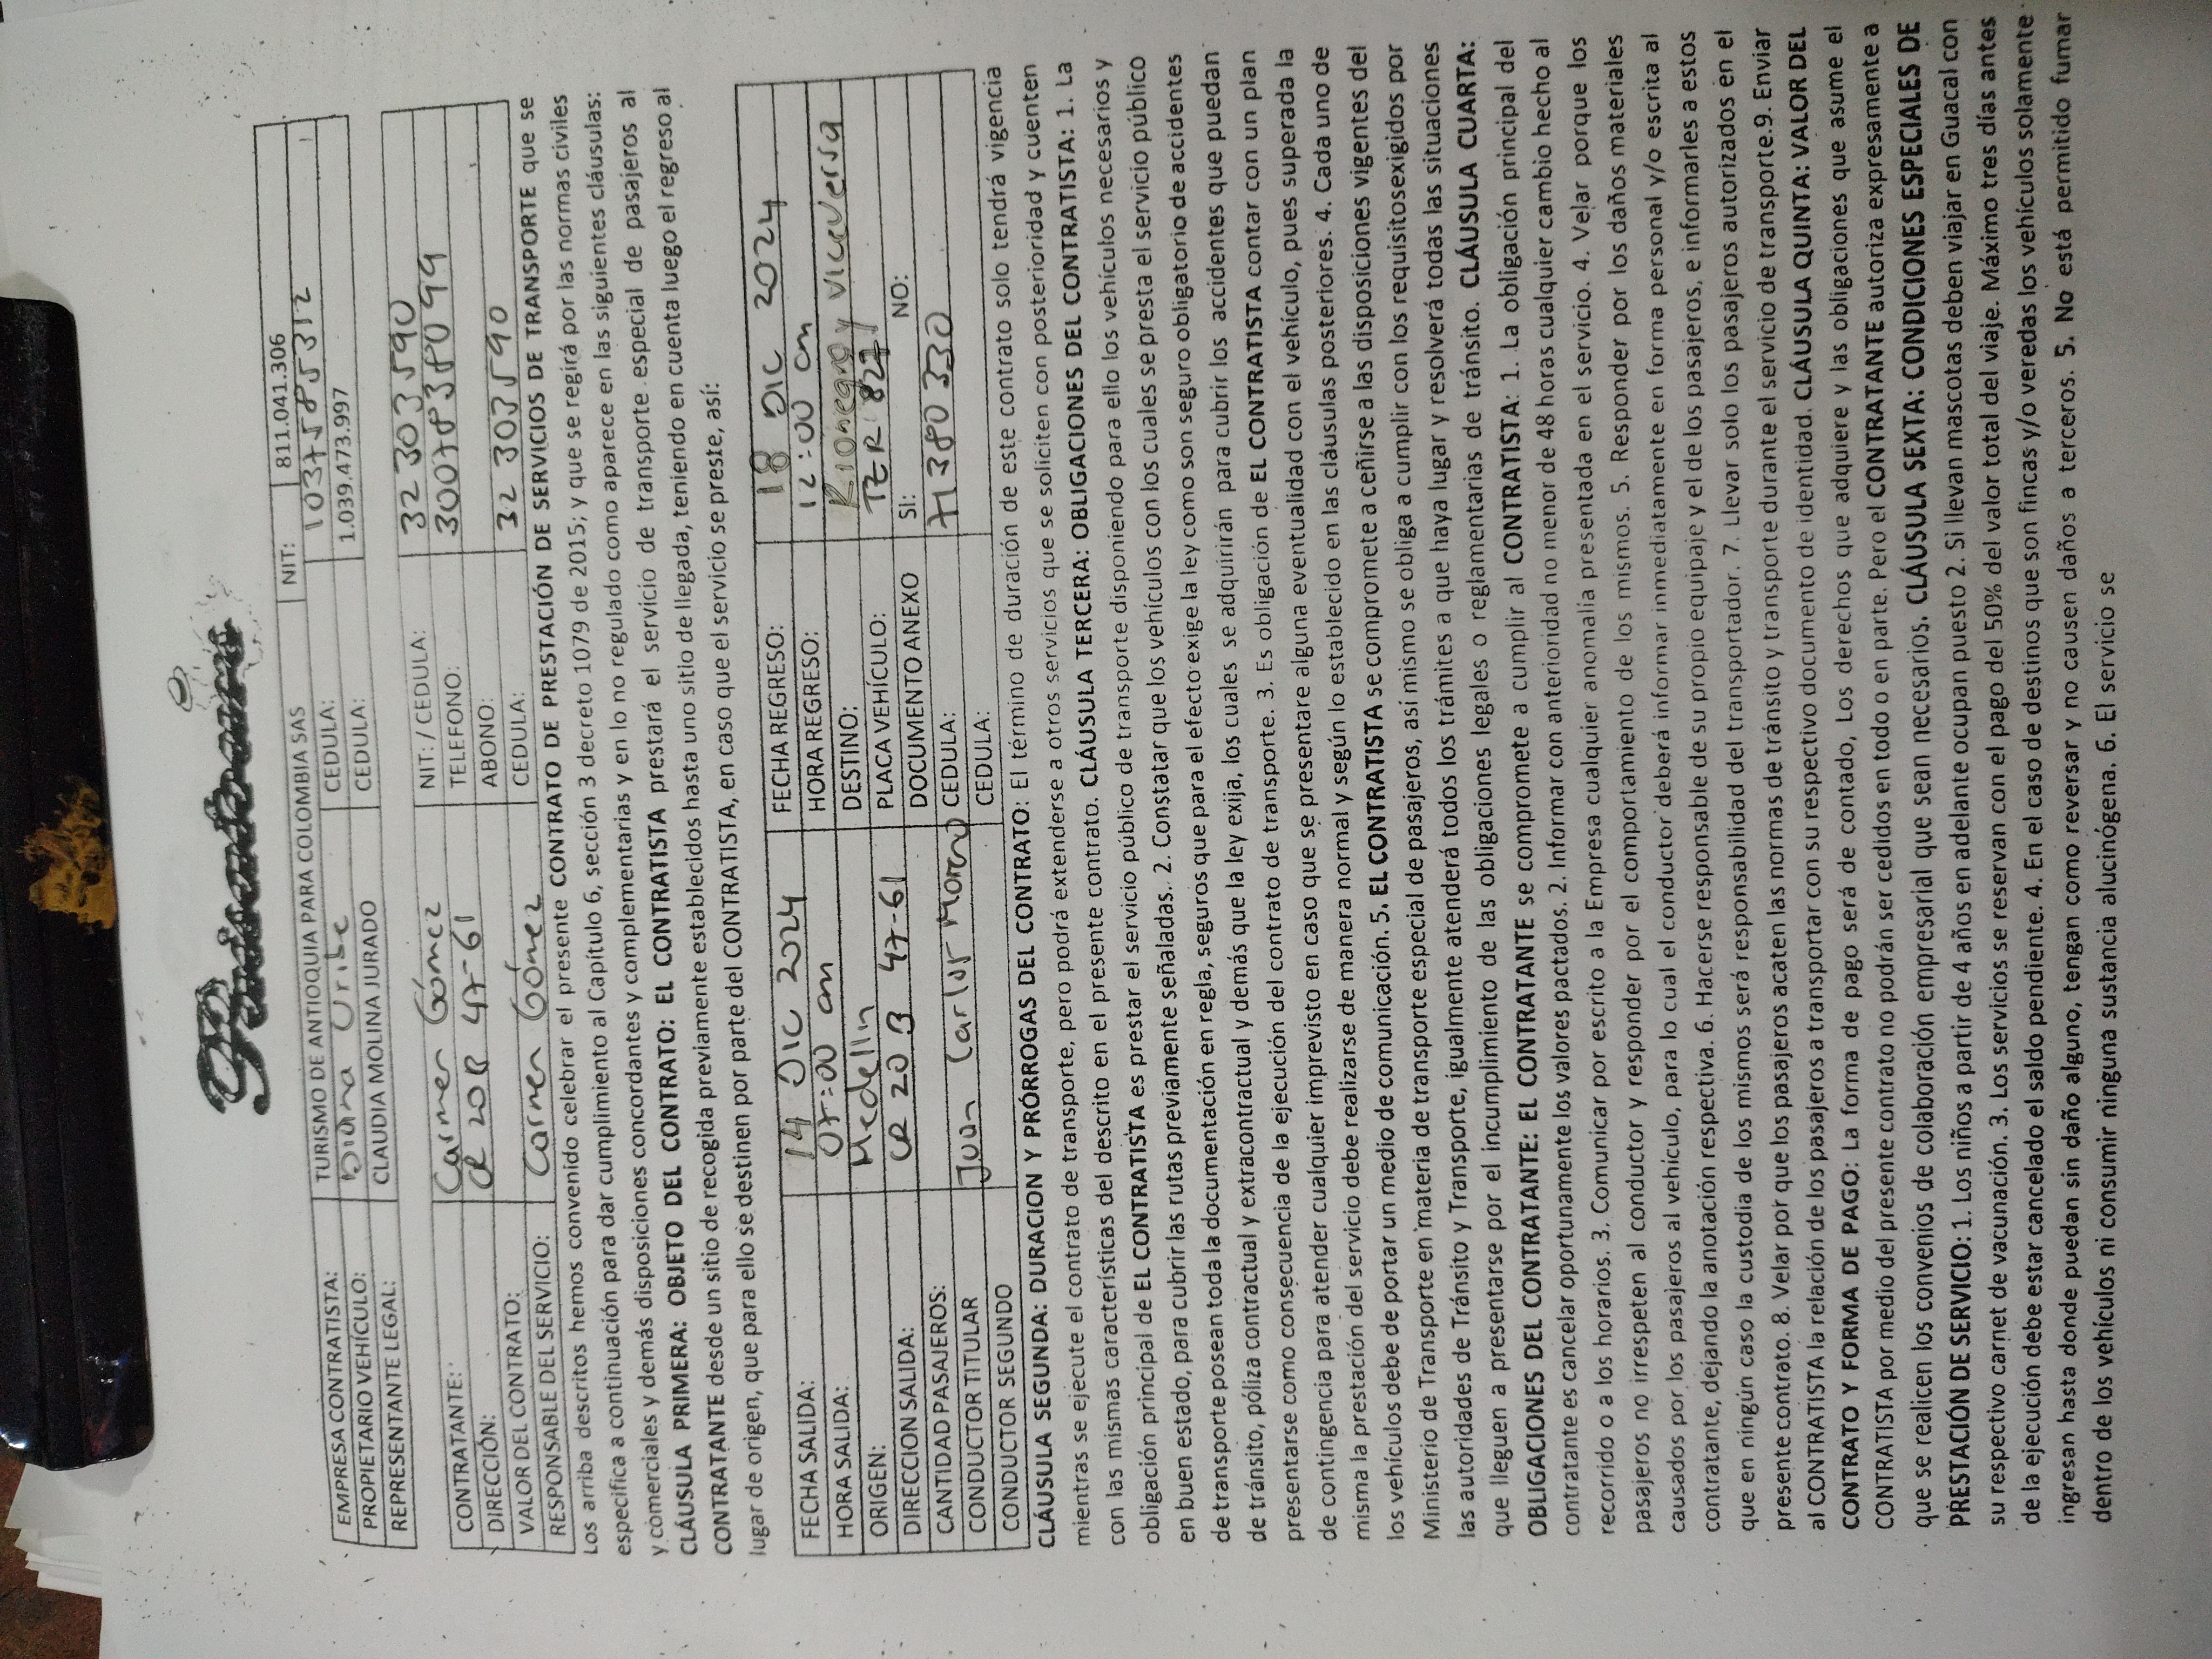 EMPRESA CONTRATISTA: TURISMO DE ANTIOQUIA PARA COLOMBIA SAS NIT: 811.041.306
PROPIETARIO VEHÍCULO: Diana Uribe CEDULA: 1037585312
REPRESENTANTE LEGAL: CLAUDIA MOLINA JURADO CEDULA: 1.039.473.997
CONTRATANTE: Carmen Gómez NIT: / CEDULA: 32 303 590
DIRECCIÓN: CR 20B 47-61 TELEFONO: 3007838099
VALOR DEL CONTRATO: ABONO:
RESPONSABLE DEL SERVICIO: Carmen Gómez CEDULA: 32 303590
Los arriba descritos hemos convenido celebrar el presente CONTRATO DE PRESTACIÓN DE SERVICIOS DE TRANSPORTE que se
especifica a continuación para dar cumplimiento al Capítulo 6, sección 3 decreto 1079 de 2015; y que se regirá por las normas civiles
y comerciales y demás disposiciones concordantes y complementarias y en lo no regulado como aparece en las siguientes cláusulas:
CLÁUSULA PRIMERA: OBJETO DEL CONTRATO: EL CONTRATISTA prestará el servicio de transporte especial de pasajeros al
CONTRATANTE desde un sitio de recogida previamente establecidos hasta uno sitio de llegada, teniendo en cuenta luego el regreso al
lugar de origen, que para ello se destinen por parte del CONTRATISTA, en caso que el servicio se preste, así:
FECHA SALIDA: 14 DIC 2024 FECHA REGRESO: 18 DIC 2024
HORA SALIDA: 07:00 am HORA REGRESO: 12:00 am
ORIGEN: Medellin DESTINO: Rionegro y viceversa
DIRECCION SALIDA: CR 20 B 47-61 PLACA VEHÍCULO: TER 827
CANTIDAD PASAJEROS: DOCUMENTO ANEXO SI: NO:
CONDUCTOR TITULAR Juan Carlos Moreno CEDULA: 71380330
CONDUCTOR SEGUNDO CEDULA:
CLÁUSULA SEGUNDA: DURACION Y PRÓRROGAS DEL CONTRATO: El término de duración de este contrato solo tendrá vigencia
mientras se ejecute el contrato de transporte, pero podrá extenderse a otros servicios que se soliciten con posterioridad y cuenten
con las mismas características del descrito en el presente contrato. CLÁUSULA TERCERA: OBLIGACIONES DEL CONTRATISTA: 1. La
obligación principal de EL CONTRATISTA es prestar el servicio público de transporte disponiendo para ello los vehículos necesarios y
en buen estado, para cubrir las rutas previamente señaladas. 2. Constatar que los vehículos con los cuales se presta el servicio público
de transporte posean toda la documentación en regla, seguros que para el efecto exige la ley como son seguro obligatorio de accidentes
de tránsito, póliza contractual y extracontractual y demás que la ley exija, los cuales se adquirirán para cubrir los accidentes que puedan
presentarse como consecuencia de la ejecución del contrato de transporte. 3. Es obligación de EL CONTRATISTA contar con un plan
de contingencia para atender cualquier imprevisto en caso que se presentare alguna eventualidad con el vehículo, pues superada la
misma la prestación del servicio debe realizarse de manera normal y según lo establecido en las cláusulas posteriores. 4. Cada uno de
los vehículos debe de portar un medio de comunicación. 5. EL CONTRATISTA se compromete a ceñirse a las disposiciones vigentes del
Ministerio de Transporte en materia de transporte especial de pasajeros, así mismo se obliga a cumplir con los requisitosexigidos por
las autoridades de Tránsito y Transporte, igualmente atenderá todos los trámites a que haya lugar y resolverá todas las situaciones
que lleguen a presentarse por el incumplimiento de las obligaciones legales o reglamentarias de tránsito. CLÁUSULA CUARTA:
OBLIGACIONES DEL CONTRATANTE: EL CONTRATANTE se compromete a cumplir al CONTRATISTA: 1. La obligación principal del
contratante es cancelar oportunamente los valores pactados. 2. Informar con anterioridad no menor de 48 horas cualquier cambio hecho al
recorrido o a los horarios. 3. Comunicar por escrito a la Empresa cualquier anomalía presentada en el servicio. 4. Velar porque los
pasajeros no irrespeten al conductor y responder por el comportamiento de los mismos. 5. Responder por los daños materiales
causados por los pasajeros al vehículo, para lo cual el conductor deberá informar inmediatamente en forma personal y/o escrita al
contratante, dejando la anotación respectiva. 6. Hacerse responsable de su propio equipaje y el de los pasajeros, e informarles a estos
que en ningún caso la custodia de los mismos será responsabilidad del transportador. 7. Llevar solo los pasajeros autorizados en el
presente contrato. 8. Velar por que los pasajeros acaten las normas de tránsito y transporte durante el servicio de transporte.9. Enviar
al CONTRATISTA la relación de los pasajeros a transportar con su respectivo documento de identidad. CLÁUSULA QUINTA: VALOR DEL
CONTRATO Y FORMA DE PAGO: La forma de pago será de contado, Los derechos que adquiere y las obligaciones que asume el
CONTRATISTA por medio del presente contrato no podrán ser cedidos en todo o en parte. Pero el CONTRATANTE autoriza expresamente a
que se realicen los convenios de colaboración empresarial que sean necesarios. CLÁUSULA SEXTA: CONDICIONES ESPECIALES DE
PRESTACIÓN DE SERVICIO: 1. Los niños a partir de 4 años en adelante ocupan puesto 2. Si llevan mascotas deben viajar en Guacal con
su respectivo carnet de vacunación. 3. Los servicios se reservan con el pago del 50% del valor total del viaje. Máximo tres días antes
de la ejecución debe estar cancelado el saldo pendiente. 4. En el caso de destinos que son fincas y/o veredas los vehículos solamente
ingresan hasta donde puedan sin daño alguno, tengan como reversar y no causen daños a terceros. 5. No está permitido fumar
dentro de los vehículos ni consumir ninguna sustancia alucinógena. 6. El servicio se